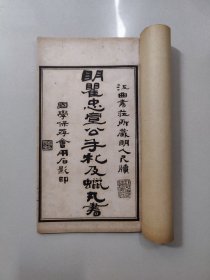 江曲書莊所藏明人尺牘
明瞿忠宣公手札及蠟丸書
國學保存會用石影印